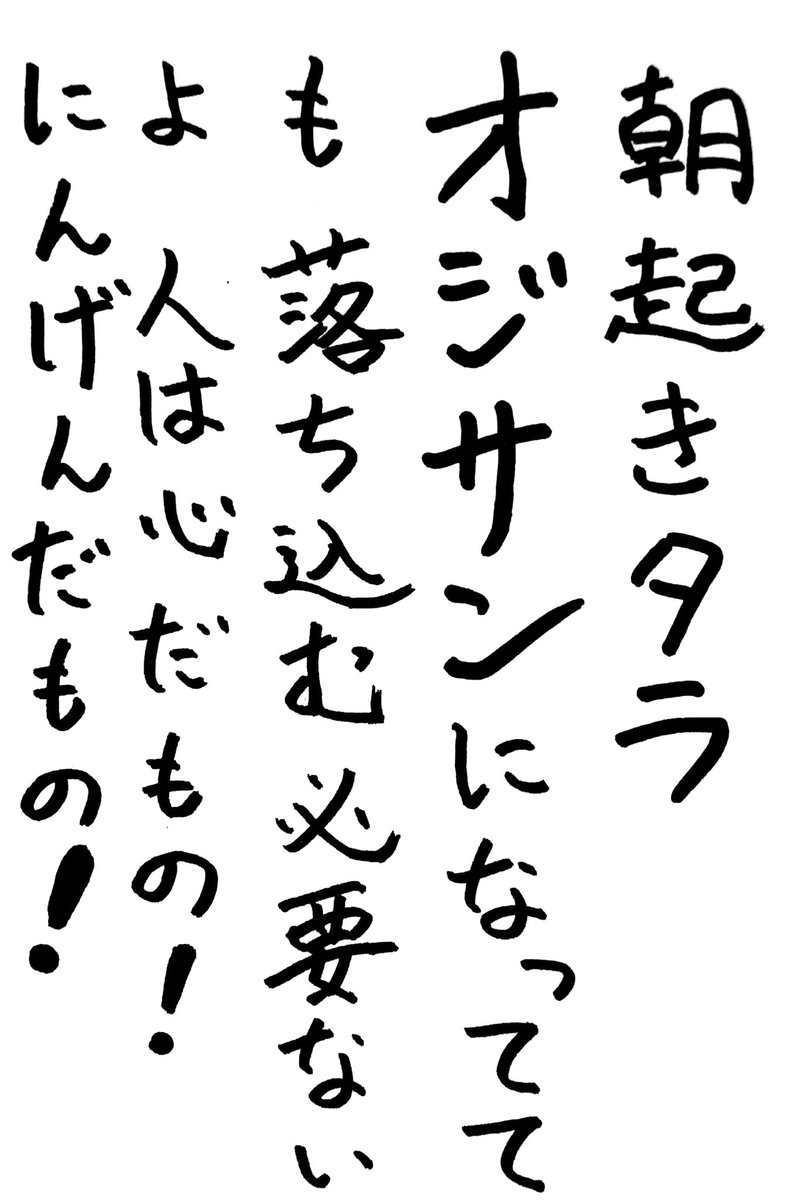 朝起きタラ
オジサンになってて
も 落ち込む必要ない
よ 人は心だもの!
にんげんだもの!